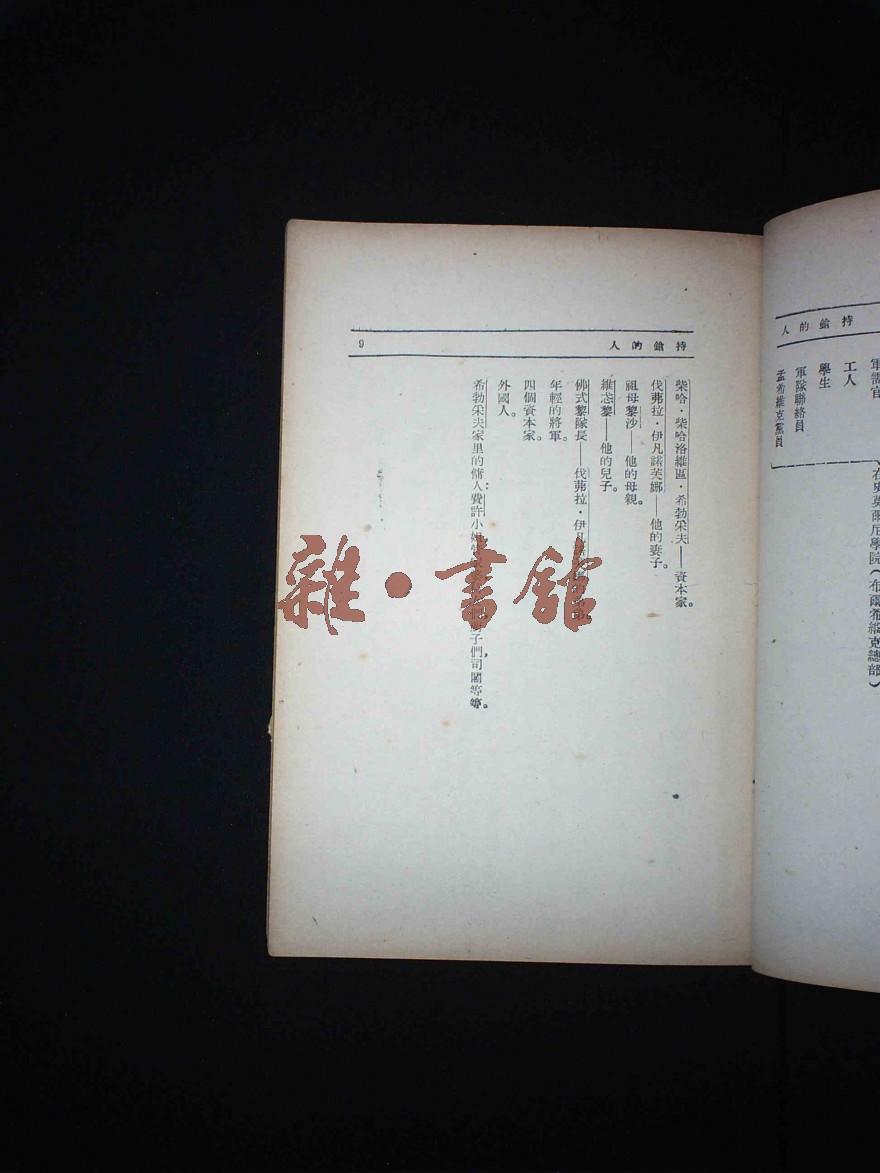 持鎗的人
軍需官
工人
學生
軍隊聯絡員
孟希維克黨員
在史莫爾尼學院(布爾希維克總部)
持鎗的人 9
柴哈·柴哈洛維區·希勃采夫——資本家。
伐弗拉·伊凡諾芙娜——他的妻子。
祖母黎沙——他的母親。
維惑黎——他的兒子。
佛式黎隊長——伐弗拉·伊凡
年輕的將軍。
四個資本家。
外國人。
希勃采夫家里的傭人:費許小姐 子們,司閽等等。
雜·書館